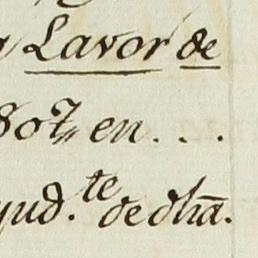 Lavor de
807, en. . .
yud.te de dha.